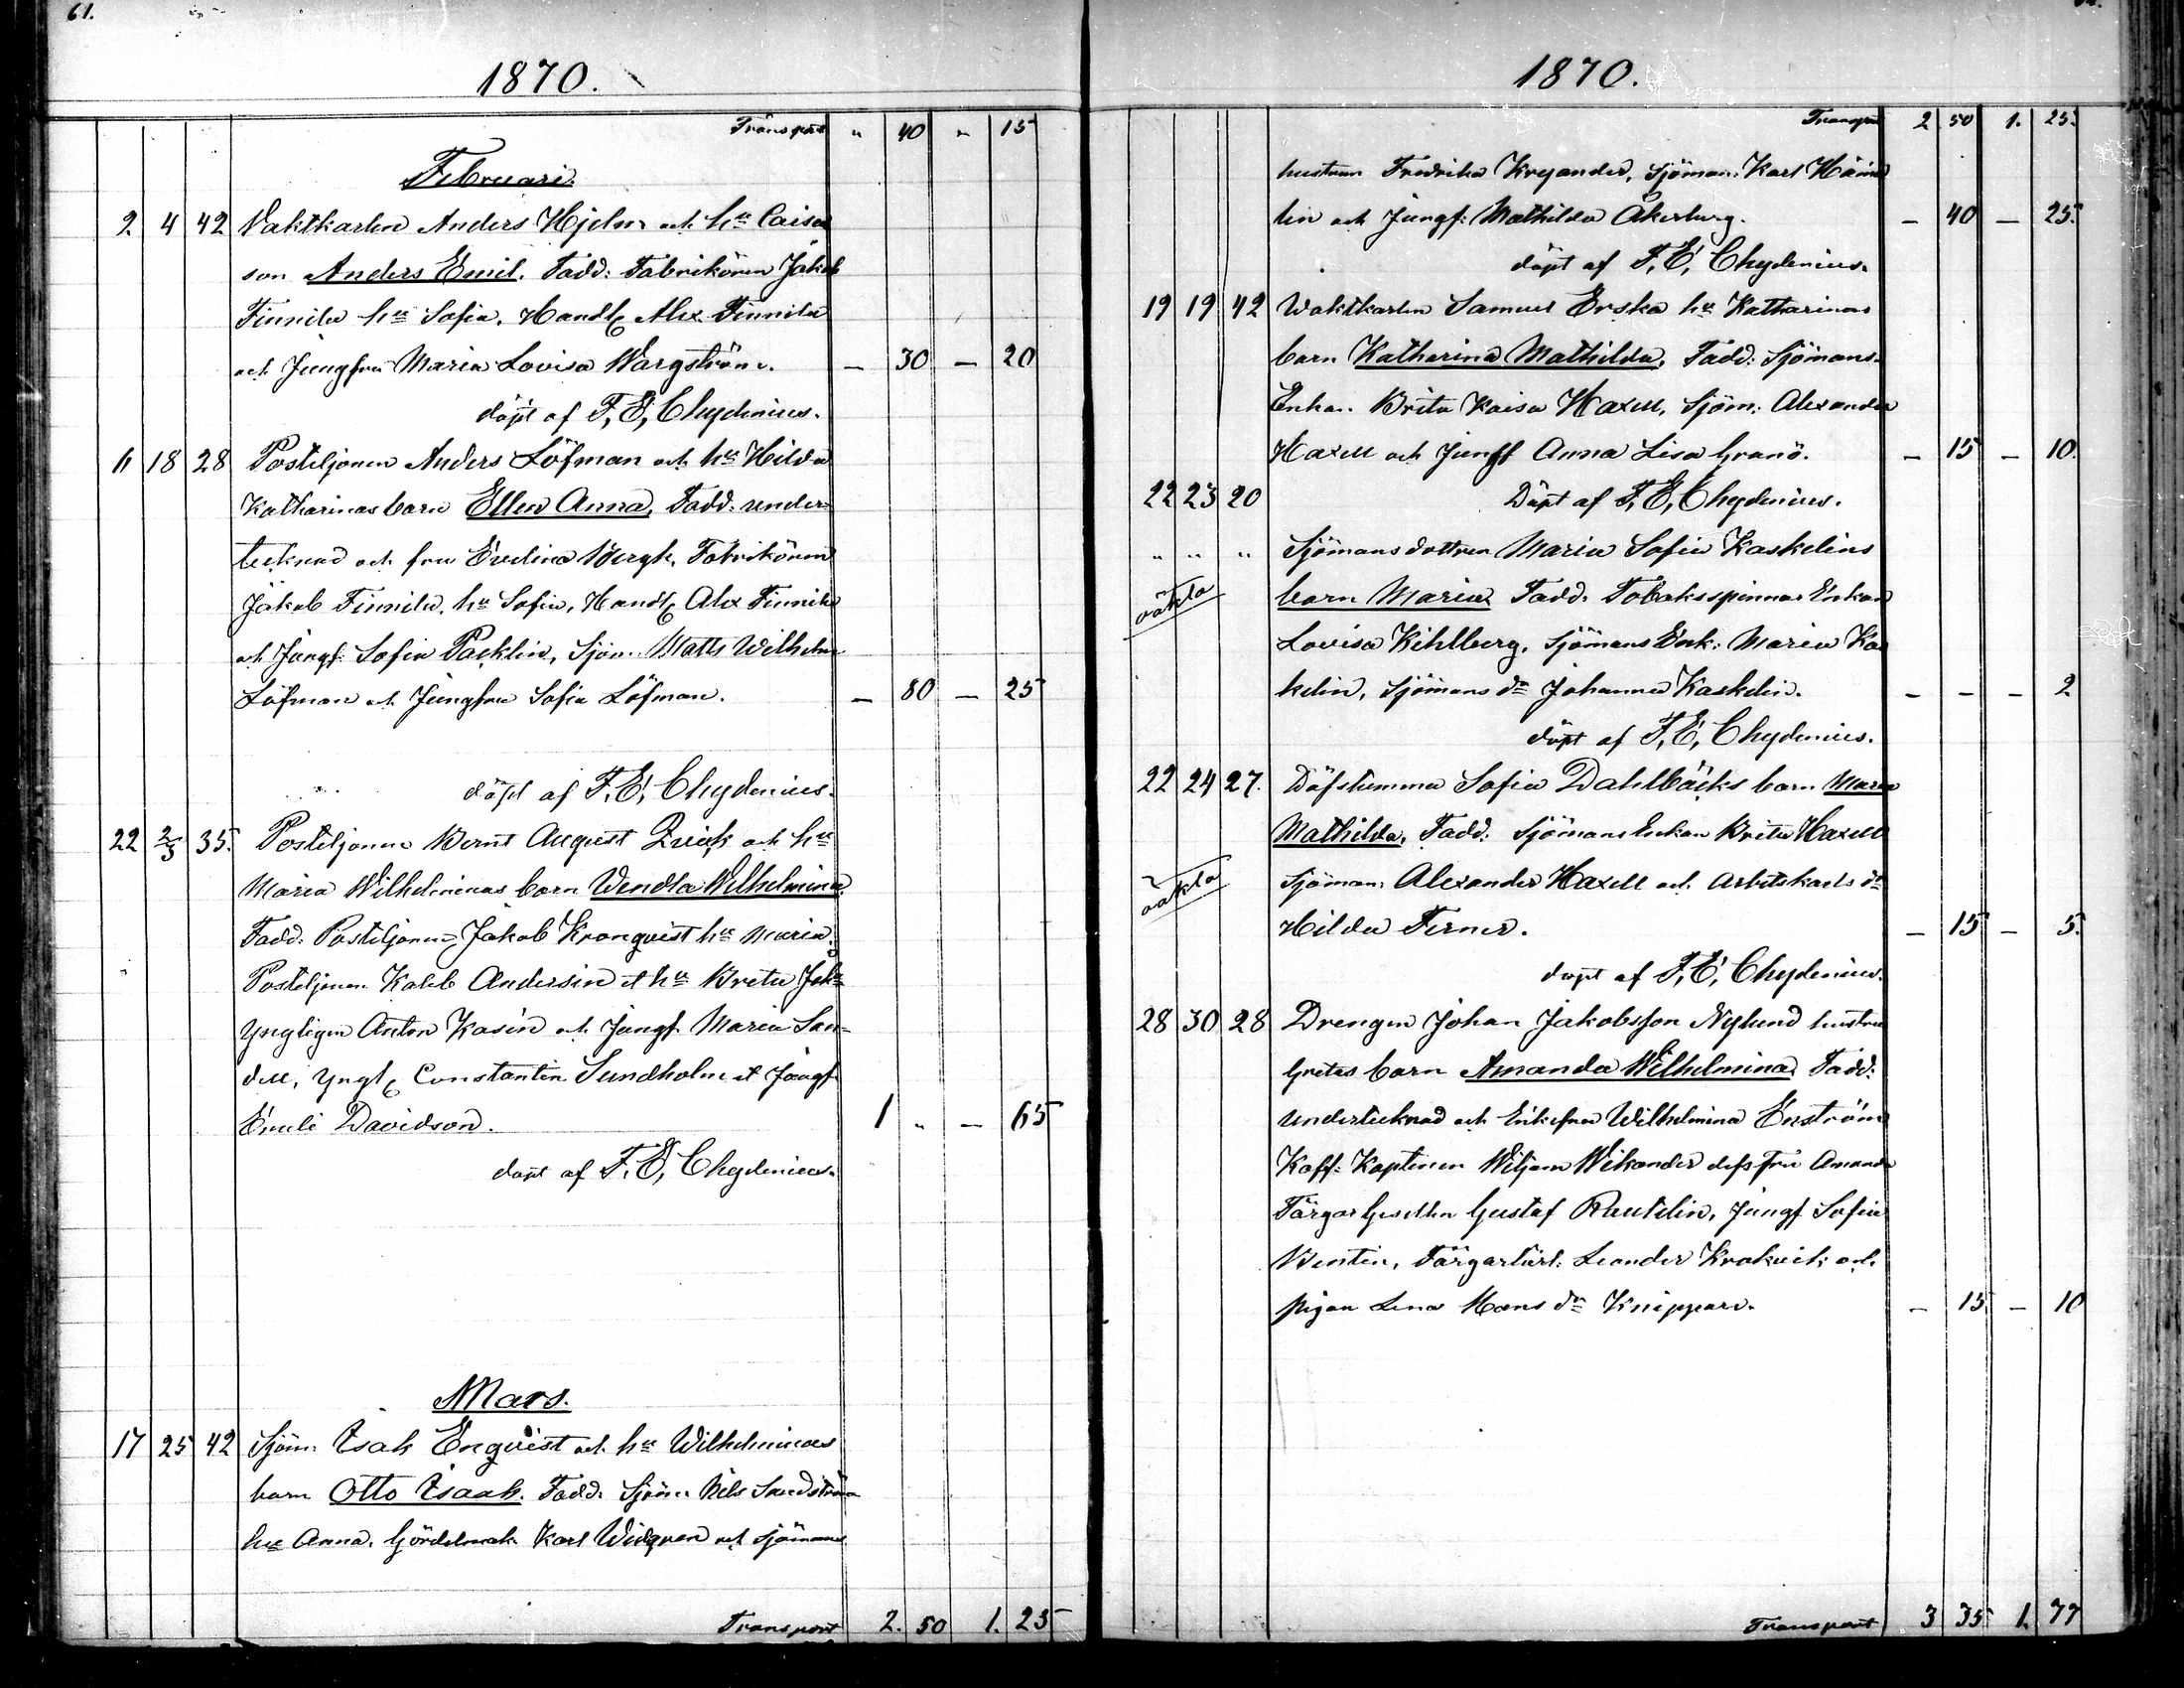 61.
1870.
Transport " 40 " 15
Februari.
2 4 42 Vaktkarlen Anders Hjelm och hu Caisas
son Anders Emil. Fadd: Fabrikören Jakob
Finnilä hu Sofia, Handl Alex Finnilä
och Jungfru Maria Lovisa Wargström. — 30 — 20
döpt af F, E, Chydenius.
11 18 28 Postiljonen Anders Löfman och hu Hilda
Katharinas barn Ellen Anna, Fadd. under-
tecknad och fru Evelina Bergh, Fabrikören
Jakob Finnilä, hu Sofia, Handl Alex Finnilä
och Jungf: Sofia Packlin, Sjöm. Matts Wilhelm
Löfman och Jungfru Sofia Löfman. — 80 — 25
döpt af F, E, Chydenius.
22 2/3 35. Postiljonen Bernt August Quick och hu
Maria Wilhelminas barn Wendla Wilhelmina.
Fadd. Postiljonen Jakob Kronqvist hu Maria.
Postiljonen Kaleb Andersin et hu Brita
Yngligen Anton Kasin och Jungf. Maria San-
dell, Yngl Constantin Sundholm et Jungf
Emili Davidson. 1 " — 65
döpt af F. E, Chydenius.
Mars.
17 25 42 Sjöm: Isak Enqvist och hu Wilhelminas
barn Otto Isaak. Fadd. Sjöm. Nils Sandström
hu Anna. Karl Widgren och sjömans
Transport 2. 50 1. 25
1870.
Transport 2 50 1. 25.
hustrun Fredrika Kryander, Sjöman. Karl
lin och Jungf: Mathilda Åkerberg. — 40 — 25.
döpt af F, E, Chydenius.
19 19 42 Waktkarlen Samuel Erska hu Katharinas
barn Katharina Mathilda, Fadd: Sjömans-
Enkan Brita Kaisa Haxell, Sjöm: Alexander
Haxell och Jungf Anna Lisa Granö. — 15 — 10.
22 23 20 Döpt af F, E, Chydenius.
" " " Sjömans dottren Maria Sofia Kaskelins
oäkta barn Maria Fadd. Tobaksspinnar Enkan
Lovisa Kihlberg, Sjömans Enk: Maria Kas
kelin, Sjömans dr Johanna Kaskelin. — — — 2
döpt af F, E, Chydenius.
22 24 27. Döfstumma Sofia Dahlbäcks barn Maria
Mathilda, Fadd: Sjömans Enkan Brita Haxell
oäkta Sjöman: Alexander Haxell och Arbetskarls dr
Hilda Ferner. — 15 — 5.
döpt af F, E, Chydenius.
28 30 28 Drengen Johan Jakobsson Nylund hustru
Gretas barn Amanda Wilhelmina Fadd:
undertecknad och Enkefru Wilhelmina Enström
Koff: Kaptenen Wiljam Wikander dess fru Amanda
Färgar Gesellen Gustaf Reutelin, Jungf Sofia
Bentin, Färgarlärl: Leander Krokvik och
pigan Lena Mans dr Knippare. — 15 — 10
Transport 3 35 1. 77